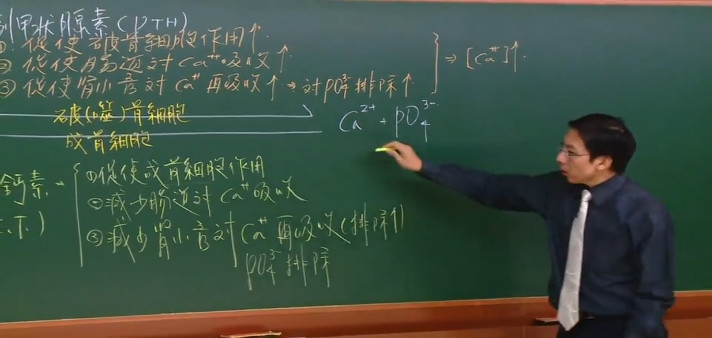 副甲狀腺素(PTH)
①促使破骨細胞作用↑
②促使腸道對Ca⁺⁺吸收↑
③促使腎小管對Ca⁺⁺再吸收↑→對PO₄³⁻排除↑
⇒[Ca⁺⁺]↑
破(噬)骨細胞
成骨細胞
Ca²⁺+PO₄³⁻
鈣素
C.T.)
①促使成骨細胞作用
②減少腸道對Ca⁺⁺吸收
③減少腎小管對Ca⁺⁺再吸收(排除↑)
PO₄³⁻排除